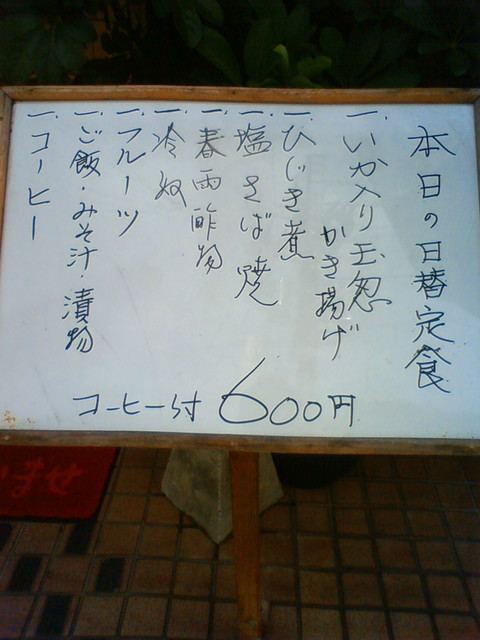 本日の日替定食
一、いか入り玉葱
かき揚げ
一、ひじき煮
一、塩さば焼
一、春雨酢物
一、冷奴
一、フルーツ
一、ご飯・みそ汁・漬物
一、コーヒー
コーヒー付 600円
ませ